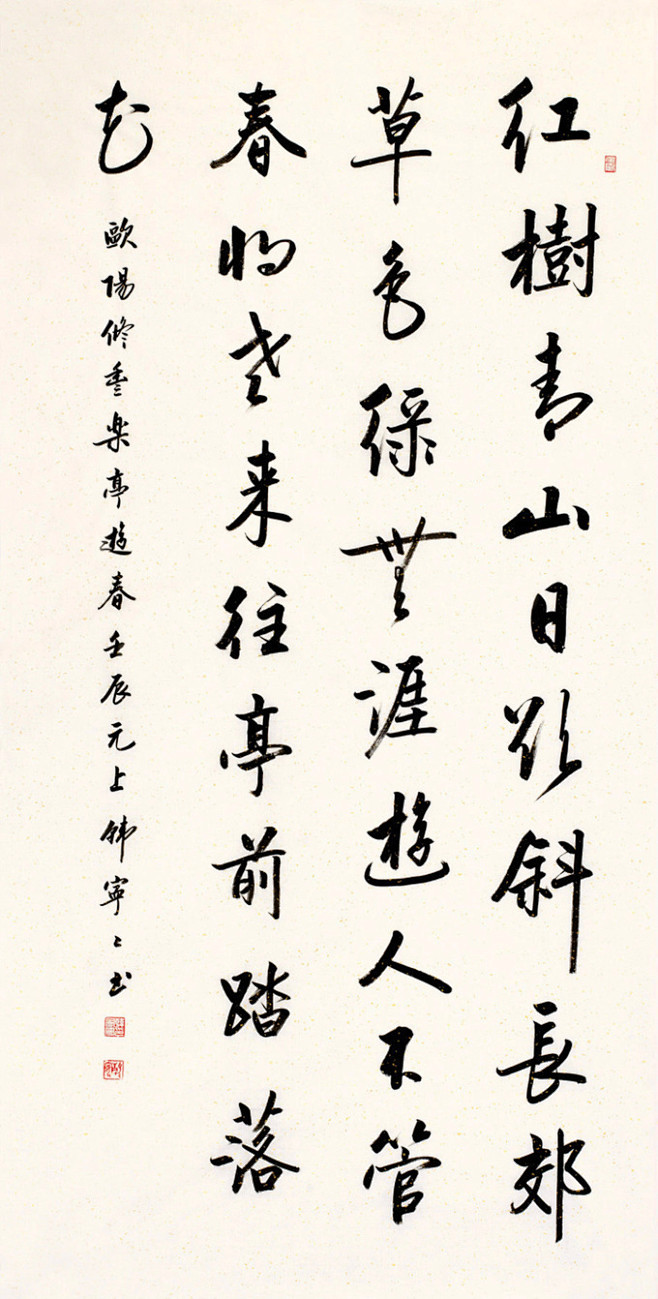 红樹青山日欲斜長郊
草色緑無涯遊人不管
春将老来往亭前踏落
花
歐陽修豊樂亭遊春壬辰元上韩寧寧书